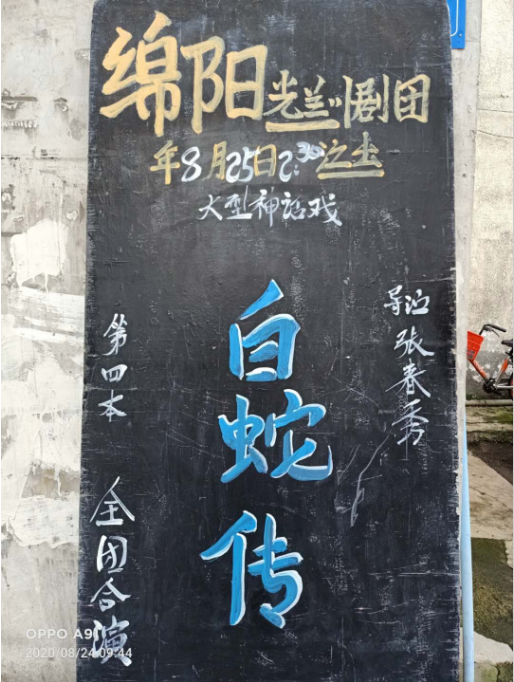 绵阳光兰川剧团
年8月25日2:30
大型神话戏
导 张春秀
白蛇传
第四本 全团合演
OPPO A9
2020/08/24 09:44